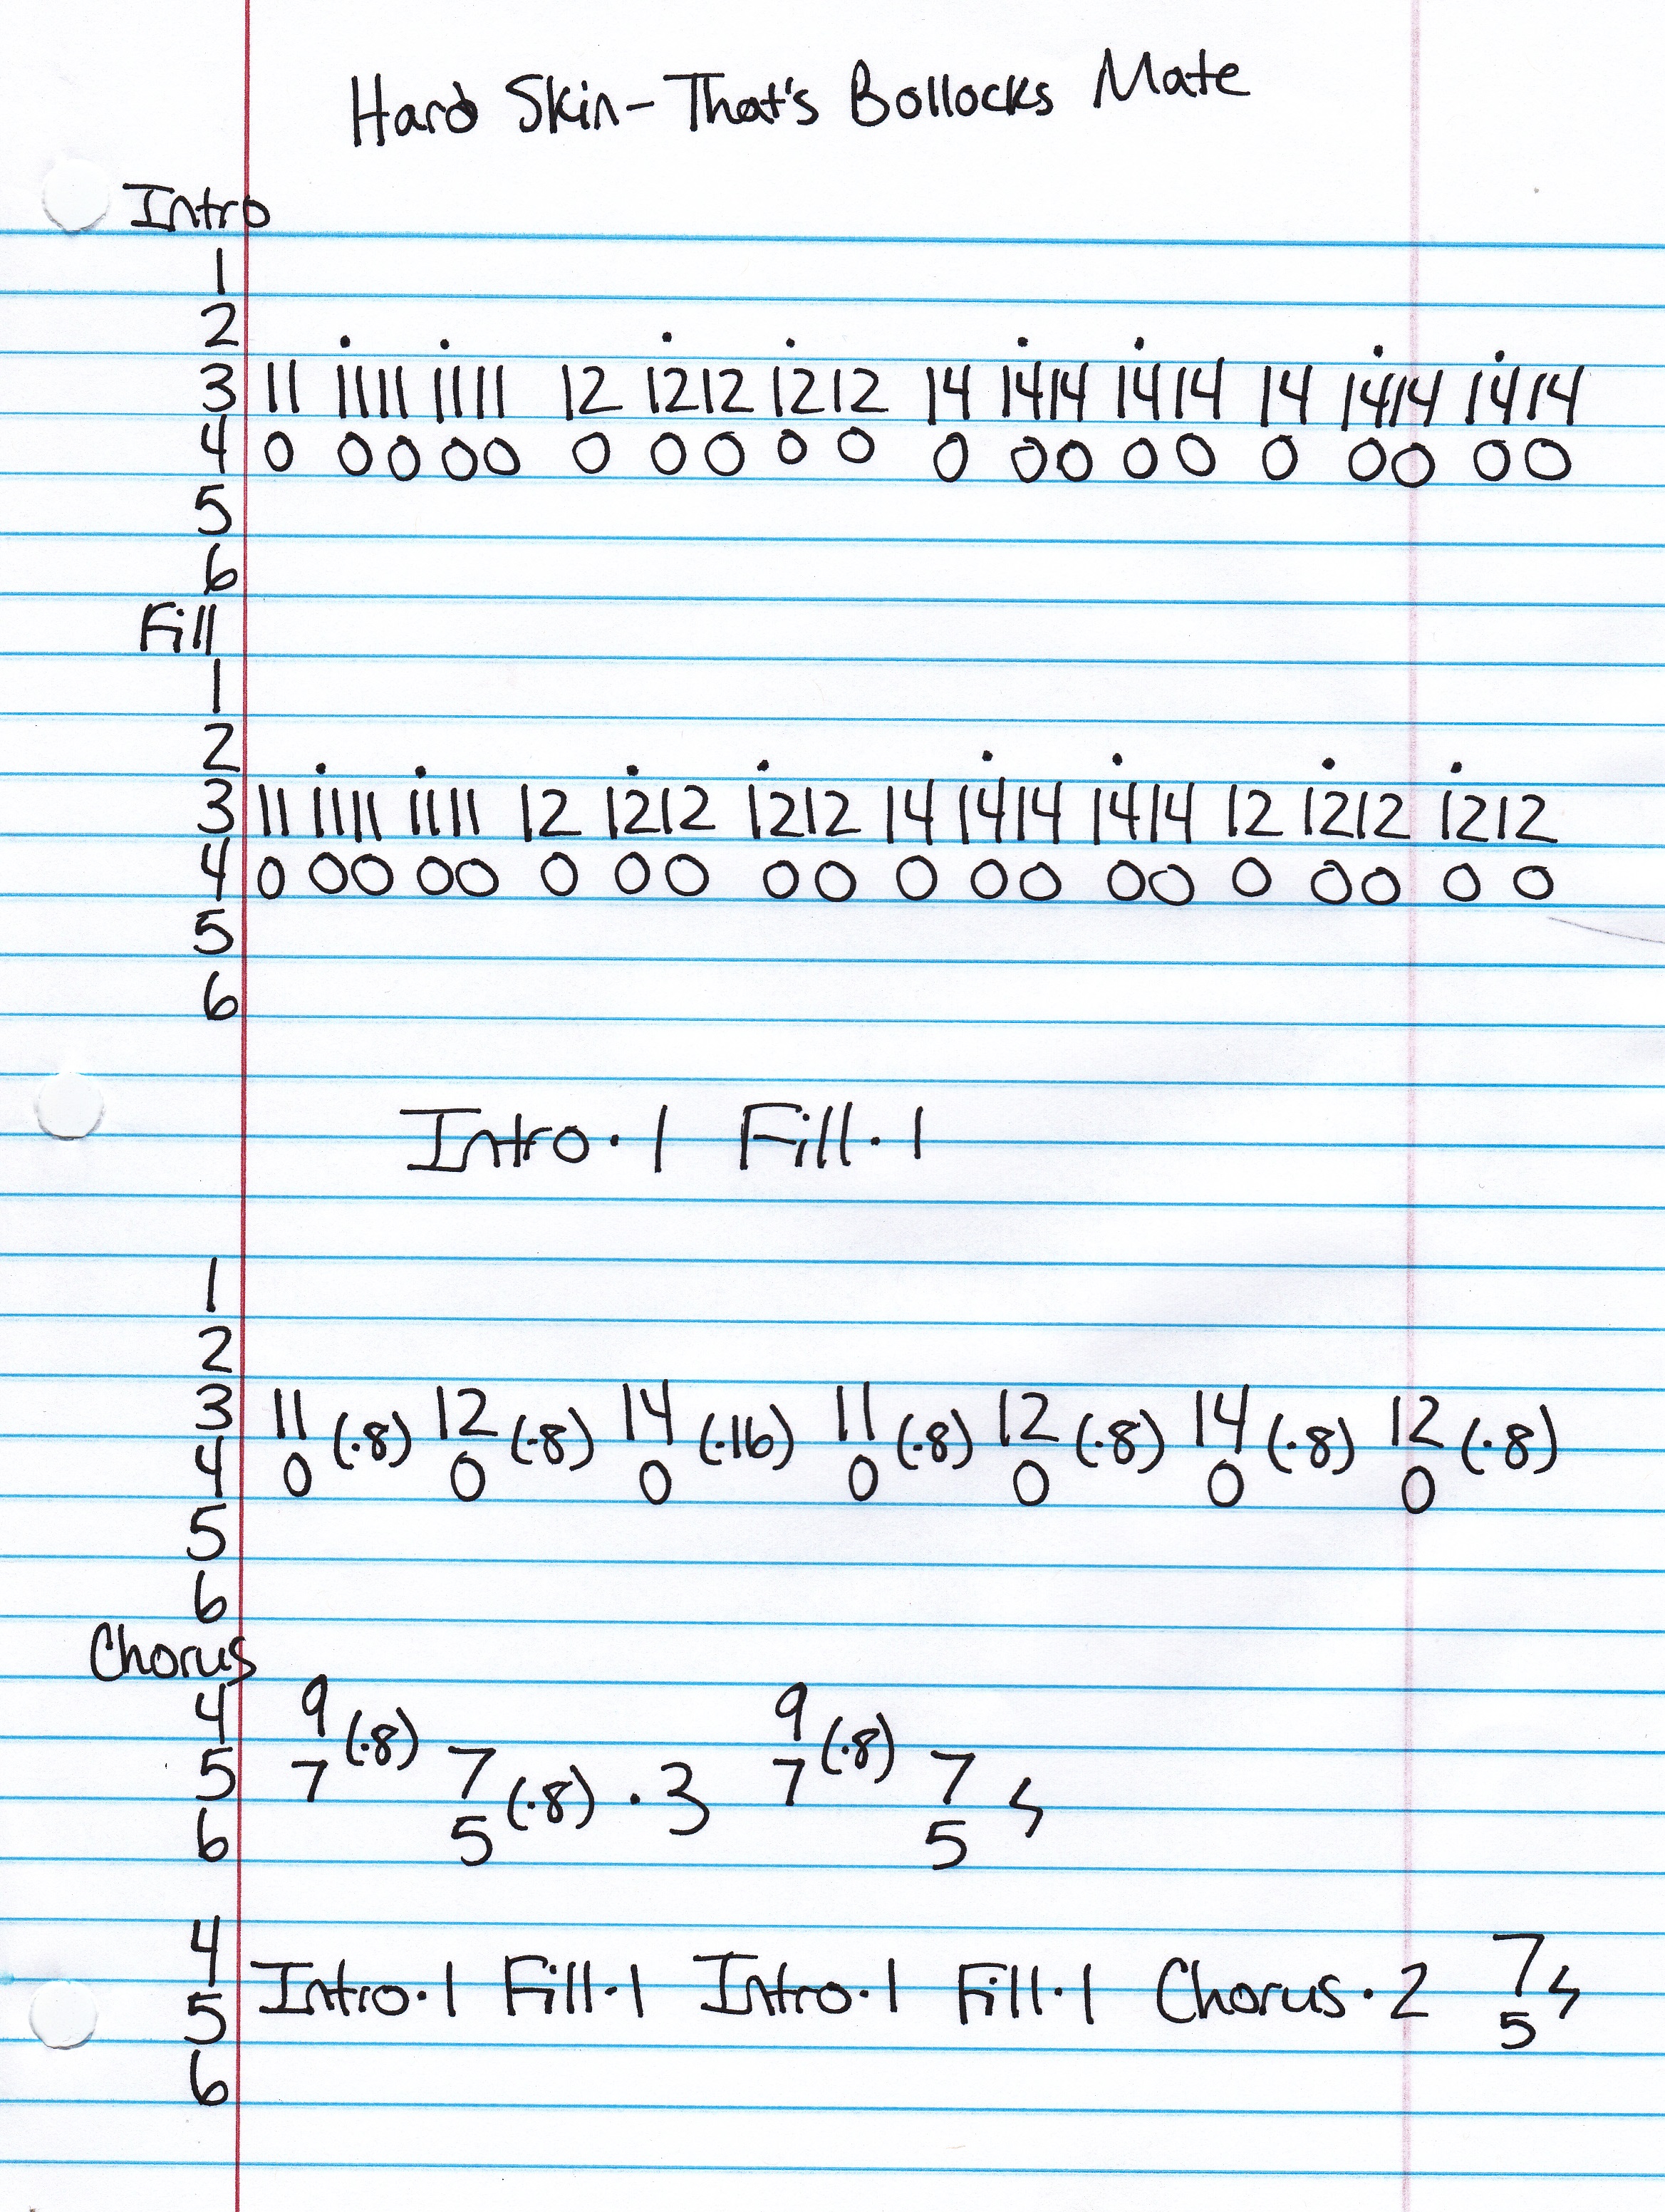 Hard Skin - That's Bollocks Mate
Intro
1
2
3 11 1111 1111 12 1212 1212 14 1414 1414 14 1414 1414
4 0 00 00 0 00 00 0 00 00 0 00 00
5
6
Fill
1
2
3 11 1111 1111 12 1212 1212 14 1414 1414 12 1212 1212
4 0 00 00 0 00 00 0 00 00 0 00 00
5
6
Intro·1 Fill·1
1
2
3 11 (·8) 12 (·8) 14 (·16) 11 (·8) 12 (·8) 14 (·8) 12 (·8)
4 0 0 0 0 0 0 0
5
6
Chorus
4 9 (·8) 9 (·8)
5 7 7 (·8) ·3 7 7
6 5 5
4 7
5 Intro·1 Fill·1 Intro·1 Fill·1 Chorus·2 5
6